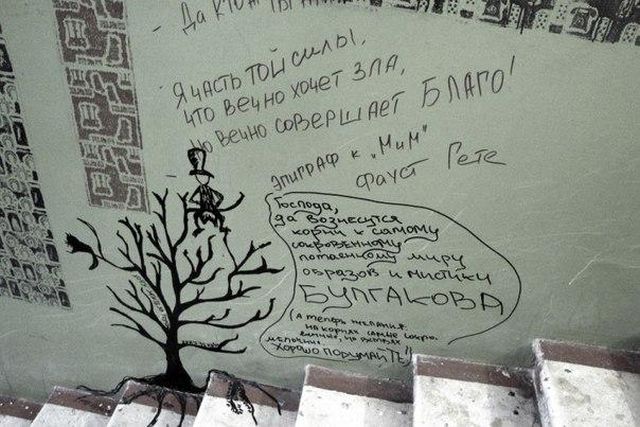 - Да кто ты
Я часть той силы,
что вечно хочет зла,
но вечно совершает благо!
Эпиграф к „МиМ"
Фауст Гете
Господа,
да вознесутся
корни к самому
сокровенному
потаенному миру
образов и мистики
БУЛГАКОВА
(А теперь желания.
на корнях самые сокро-
венные, на ветвях
мелокие.
Хорошо подумайТЕ!)